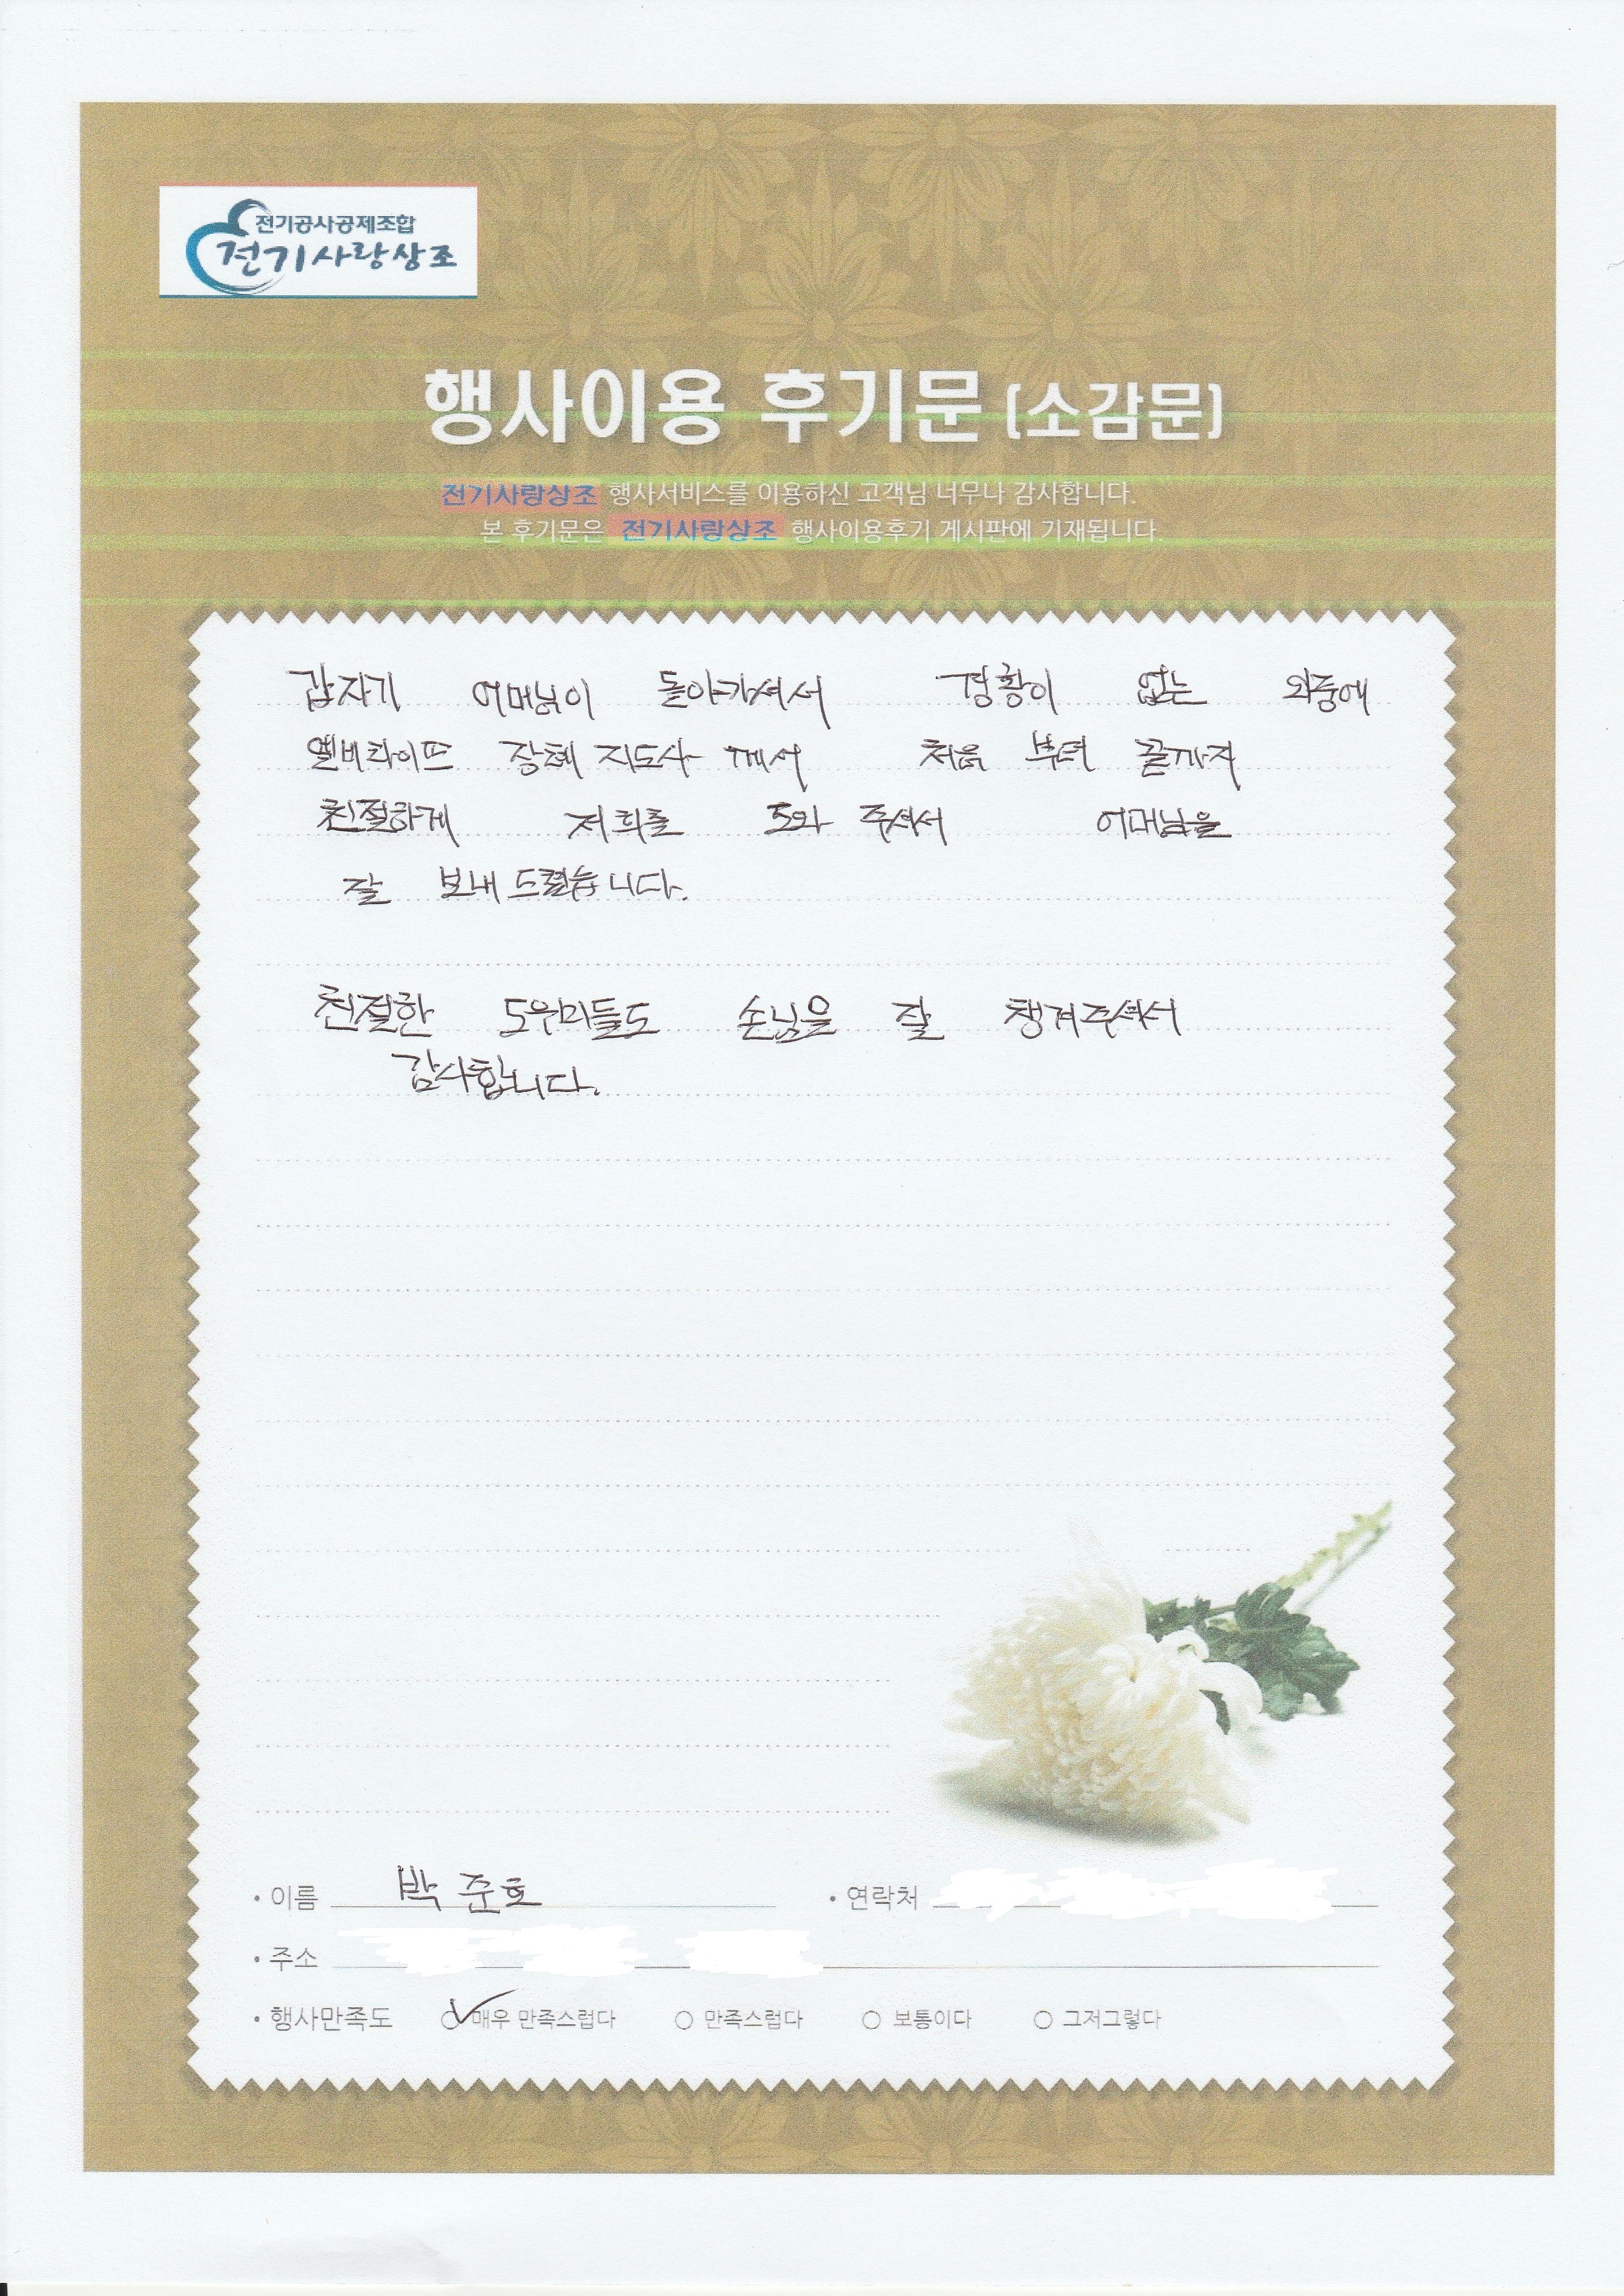 전기공사공제조합
전기사랑상조
행사이용 후기문 (소감문)
전기사랑상조 행사서비스를 이용하신 고객님 너무나 감사합니다.
본 후기문은 전기사랑상조 행사이용후기 게시판에 기재됩니다.
갑자기 어머님이 돌아가셔서 경황이 없는 와중에
엘비라이프 장례 지도사 께서 처음 부터 끝까지
친절하게 저희를 도와 주셔서 어머님을
잘 보내 드렸습니다.
친절한 도우미들도 손님을 잘 챙겨주셔서
감사합니다.
• 이름 박준호 • 연락처
• 주소
• 행사만족도 ○ 매우 만족스럽다 ○ 만족스럽다 ○ 보통이다 ○ 그저그렇다